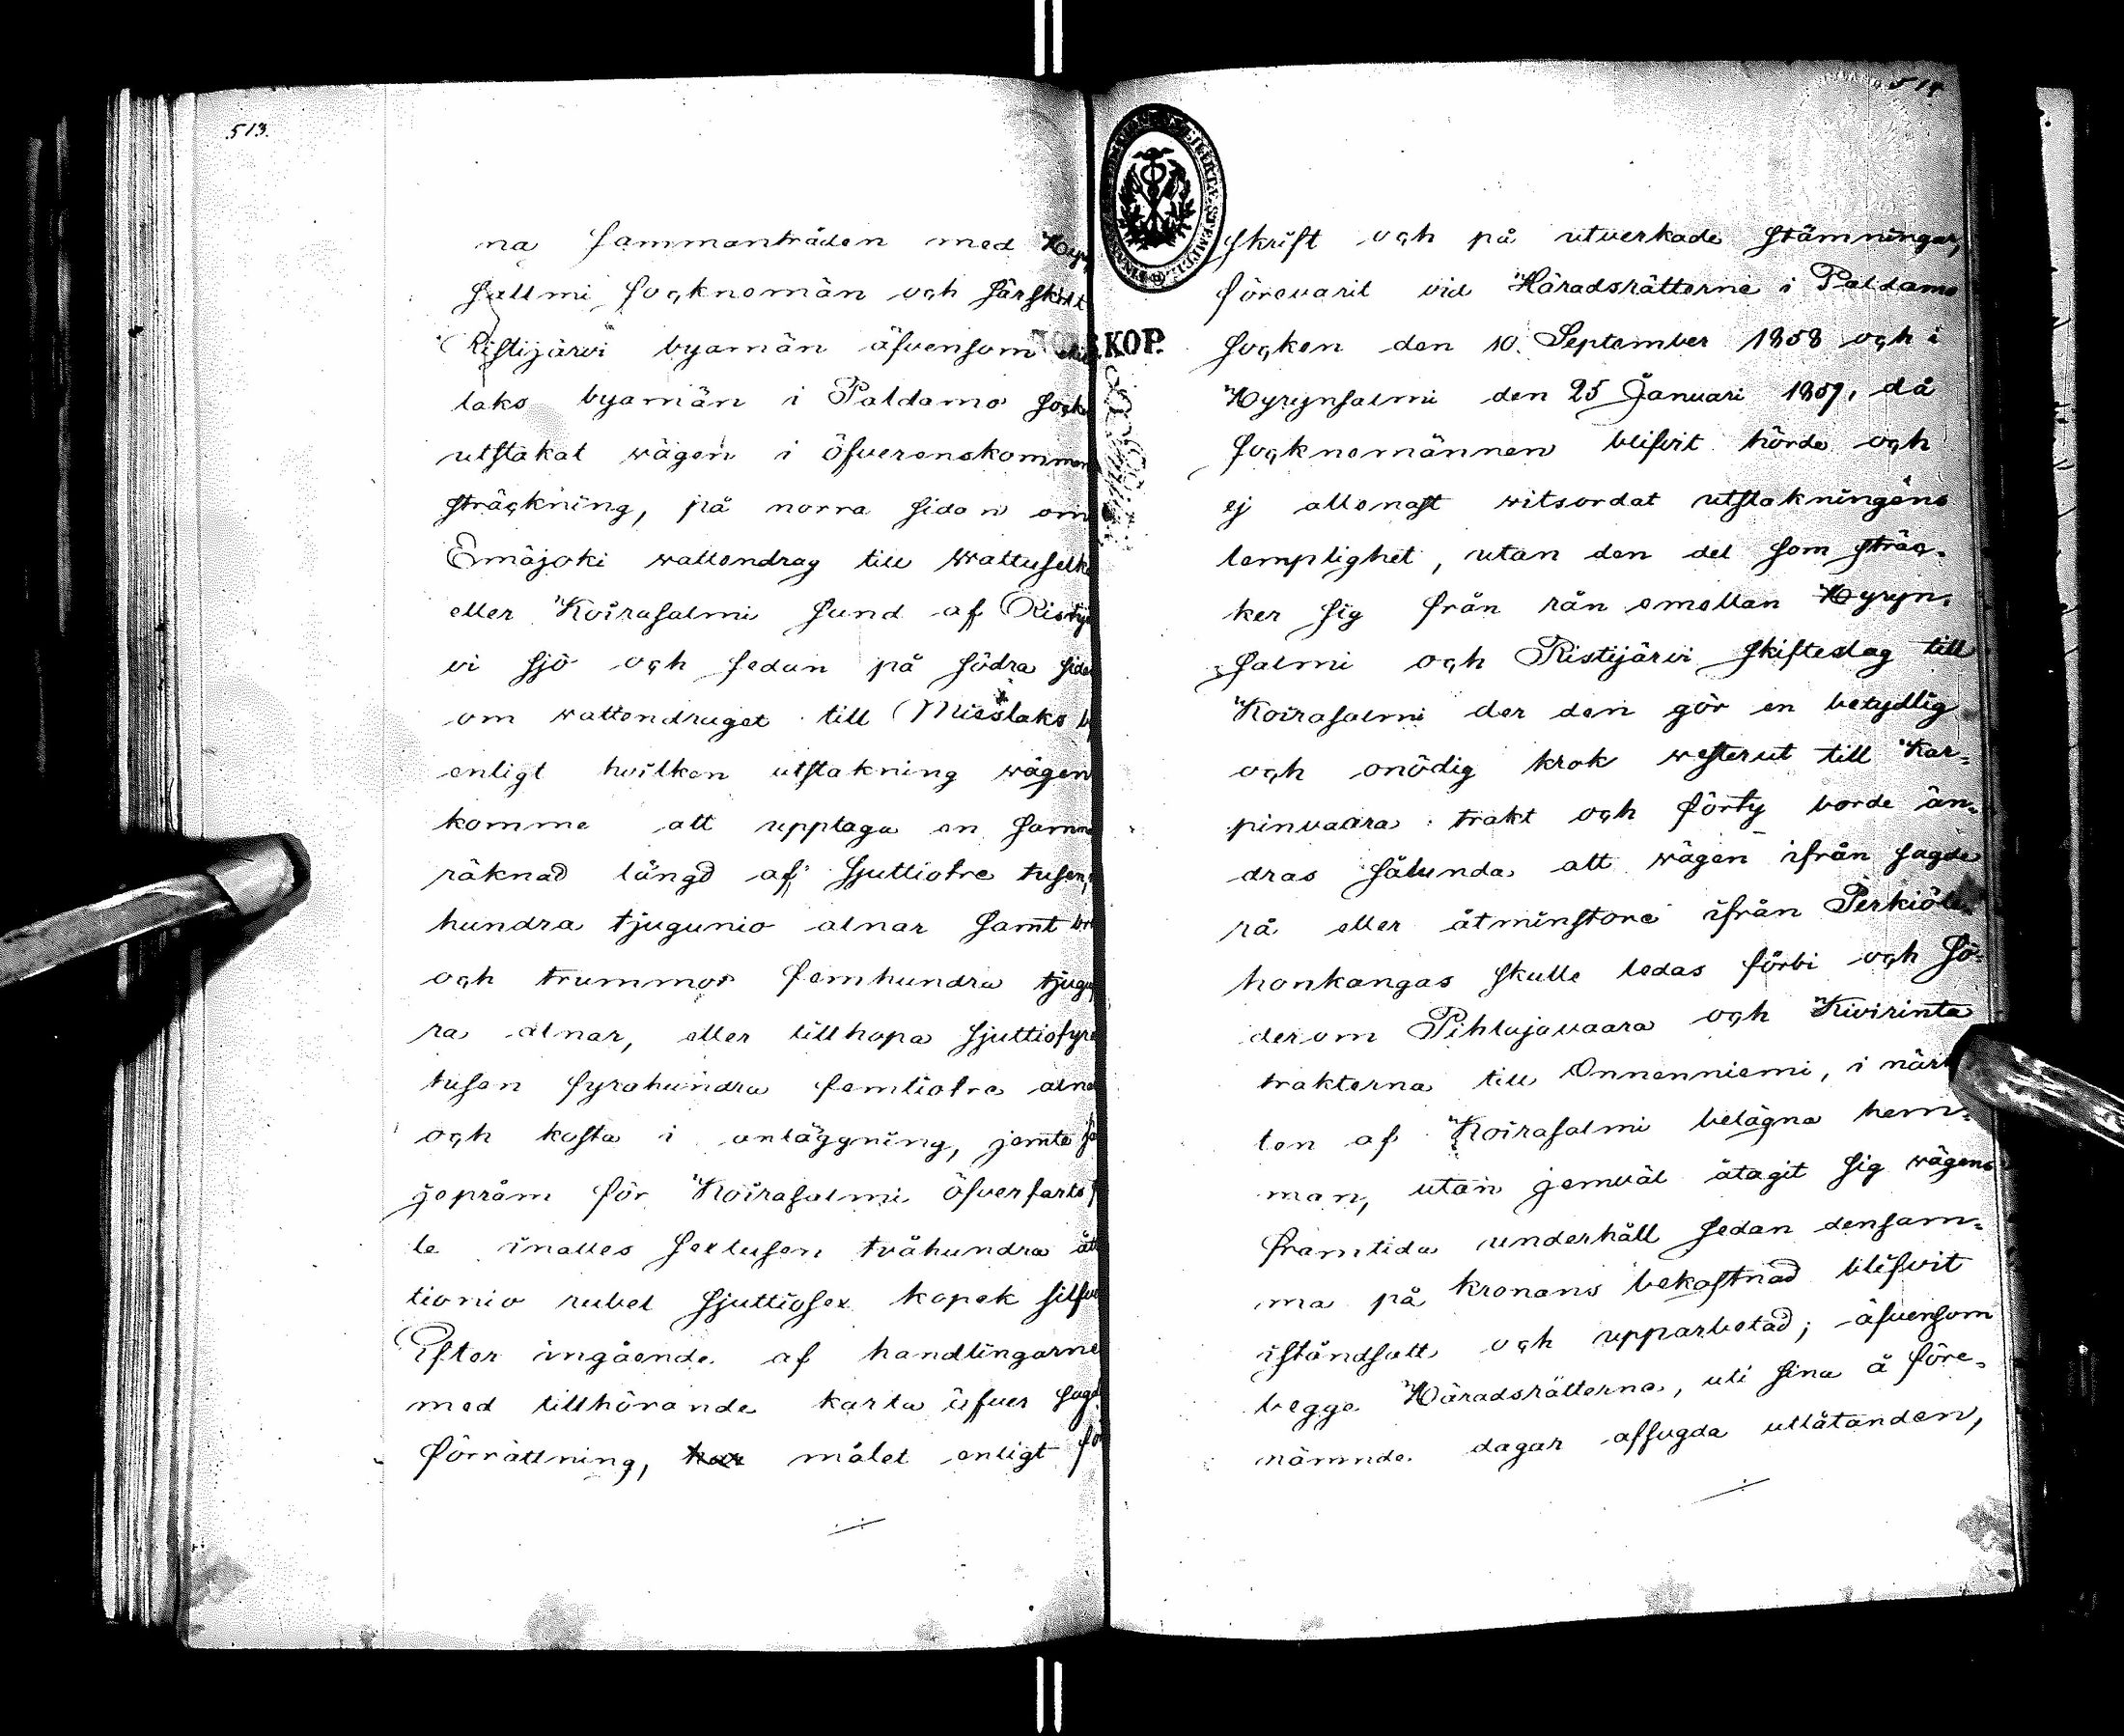 513.
na sammanträden med Hyry
salmi socknemän och särskilt
Ristijärvi byamän äfvensom
laks byamän i Paldamo socke
utstakat wägen i öfverenskommen
sträckning, på norra sidan om
Emäjoki wattendrag till Wattuselkä
eller Koirasalmi sund af Ristijä
vi sjö och sedan på södra sidan
om wattendraget till Mieslaks b
enligt hvilken utstakning wägen
komme att upptaga en samman
räknad längd af sjuttiotre tusen
hundra tjugunio alnar samt bro
och trummor femhundra tjugu
ra alnar, eller tillhopa sjuttiofyra
tusen fyrahundra femtiotre alna
och kosta i anläggning, jemte
jepråm för Koirasalmi öfverfarts
le inalles sextusen tvåhundra åt
tionio rubel sjuttiosex kopek silfve
Efter ingående af handlingarne
med tillhörande karta öfver sagd
förrättning, har målet enligt fö
514
KOP.
skrift och på utverkade stämningar,
förevarit vid Häradsrätterne i Paldamo
socken den 10. September 1858 och i
Hyrynsalmi den 25 Januari 1857, då
socknemännen blifvit hörde och
ej allenast witsordat utstakningens
lemplighet, utan den del som sträc-
ker sig från rån emellan Hyryn-
salmi och Ristijärvi skifteslag till
Koirasalmi der den gör en betydlig
och onödig krok westerut till Kar-
pinvaara trakt och förty borde än-
dras sålunda att wägen ifrån sagde
rå eller åtminstone ifrån Perkiöle-
honkangas skulle ledas förbi och sö-
derom Pihlajavaara och Kivirinta
trakterna till Onnenniemi, i när
ten af Koirasalmi belägna hem-
man, utan jemväl åtagit sig wägens
framtida underhåll sedan densam-
ma på kronans bekostnad blifvit
iståndsatt och upparbetad; äfvensom
begge Häradsrätterna, uti sina å före-
nämnde dagar afsagda utlåtanden,